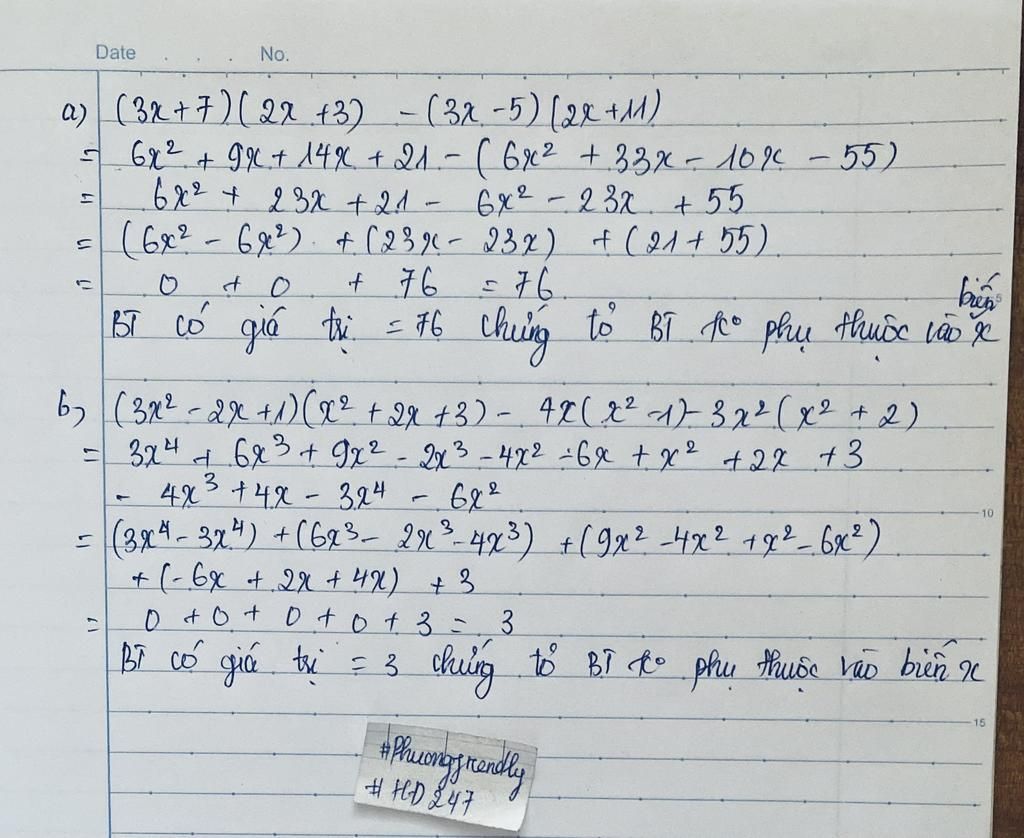 Date . . . No.
a) (3x+7)(2x+3) - (3x-5)(2x+11)
= 6x² + 9x + 14x + 21 - (6x² + 33x - 10x - 55)
= 6x² + 23x + 21 - 6x² - 23x + 55
= (6x² - 6x²) + (23x - 23x) + (21 + 55)
= 0 + 0 + 76 = 76
biến
BT có giá trị = 76 chứng tỏ BT ko phụ thuộc vào x
b, (3x² - 2x + 1)(x² + 2x + 3) - 4x(x² - 1) - 3x²(x² + 2)
= 3x⁴ + 6x³ + 9x² - 2x³ - 4x² - 6x + x² + 2x + 3
- 4x³ + 4x - 3x⁴ - 6x²
10
= (3x⁴ - 3x⁴) + (6x³ - 2x³ - 4x³) + (9x² - 4x² + x² - 6x²)
+ (-6x + 2x + 4x) + 3
= 0 + 0 + 0 + 0 + 3 = 3
BT có giá trị = 3 chứng tỏ BT ko phụ thuộc vào biến x
15
#Phuongfrendly
# HD 247